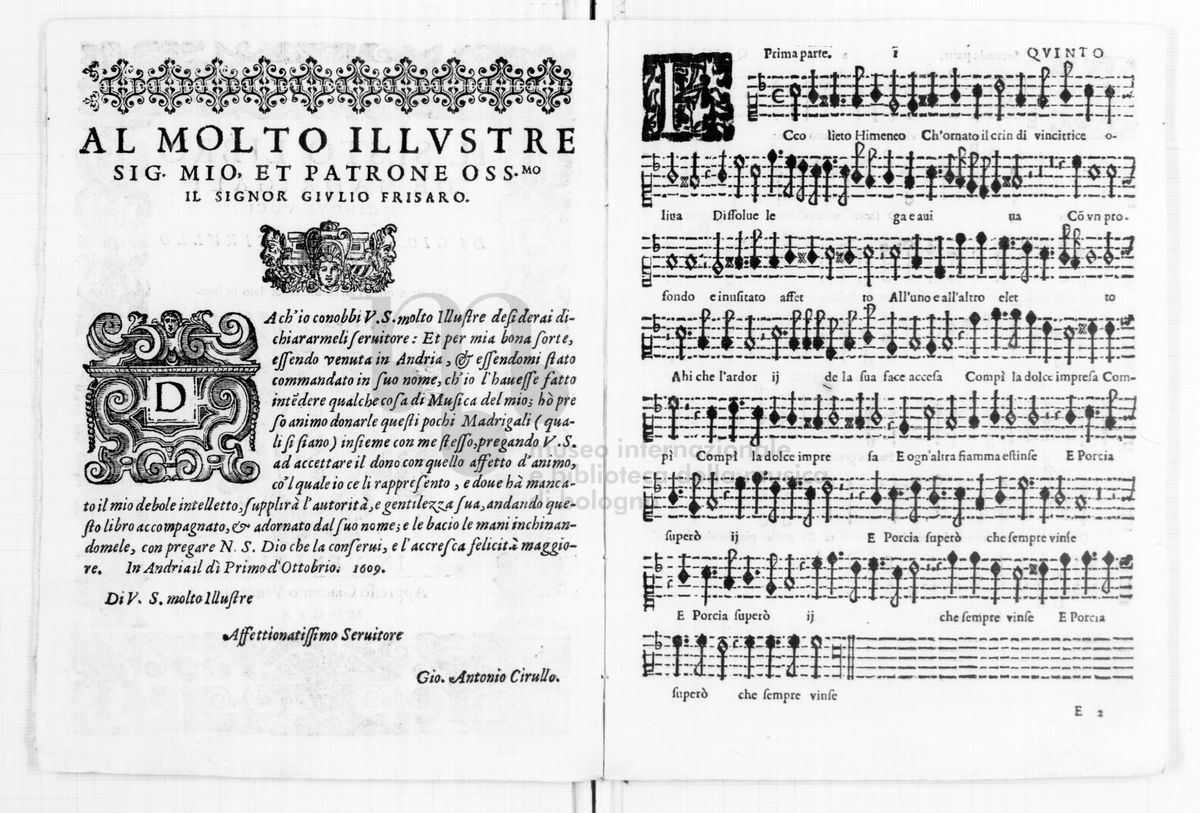 AL MOLTO ILLVSTRE
SIG. MIO, ET PATRONE OSS.MO
IL SIGNOR GIVLIO FRISARO.
DA ch'io conobbi V. S. molto Illustre desiderai di-
chiararmeli seruitore: Et per mia bona sorte,
essendo venuta in Andria, & essendomi stato
commandato in suo nome, ch'io l'hauesse fatto
intẽdere qualche cosa di Musica del mio; hò pre
so animo donarle questi pochi Madrigali (qua-
li si siano) insieme con me stesso, pregando V. S.
ad accettare il dono con quello affetto d'animo,
cõ'l quale io ce li rappresento, e doue hà manca-
to il mio debole intelletto, supplirà l'autorità, e gentilezza sua, andando que-
sto libro accompagnato, & adornato dal suo nome; e le bacio le mani inchinan-
domele, con pregare N. S. Dio che la conserui, e l'accresca felicità maggio-
re. In Andria il dì Primo d'Ottobrio. 1609.
Di V. S. molto Illustre
Affettionatissimo Seruitore
Gio. Antonio Cirullo.
Prima parte. 1 QVINTO
ECco lieto Himeneo Ch'ornato il crin di vincitrice o-
liua Dissolue le ga e aui ua Cõ vn pro-
fondo e inusitato affet to All'uno e all'altro elet to
Ahi che l'ardor ij de la sua face accesa Compì la dolce impresa Com-
pì Compì la dolce impre sa E ogn'altra fiamma estinse E Porcia
superò ij E Porcia superò che sempre vinse
E Porcia superò ij che sempre vinse E Porcia
superò che sempre vinse
E 2
museo internazionale
e biblioteca della musica
di bologna